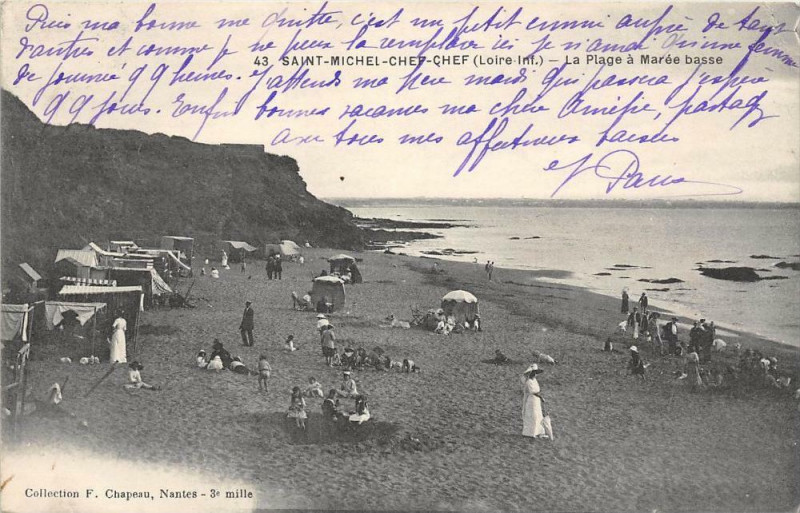 Puis ma bonne me quitte, c'est un petit ennui auprès de tant
d'autres et comme je ne peux la remplacer ici je n'aurai qu'une femme
43 SAINT-MICHEL-CHEF-CHEF (Loire-Inf.) — La Plage à Marée basse
de journée qq heures. J'attends ma mère mardi qui passera j'espère
qq jours. Enfin bonnes vacances ma chère Amélie, partagez
avec tous mes affectueux baisers
Collection F. Chapeau, Nantes - 3e mille